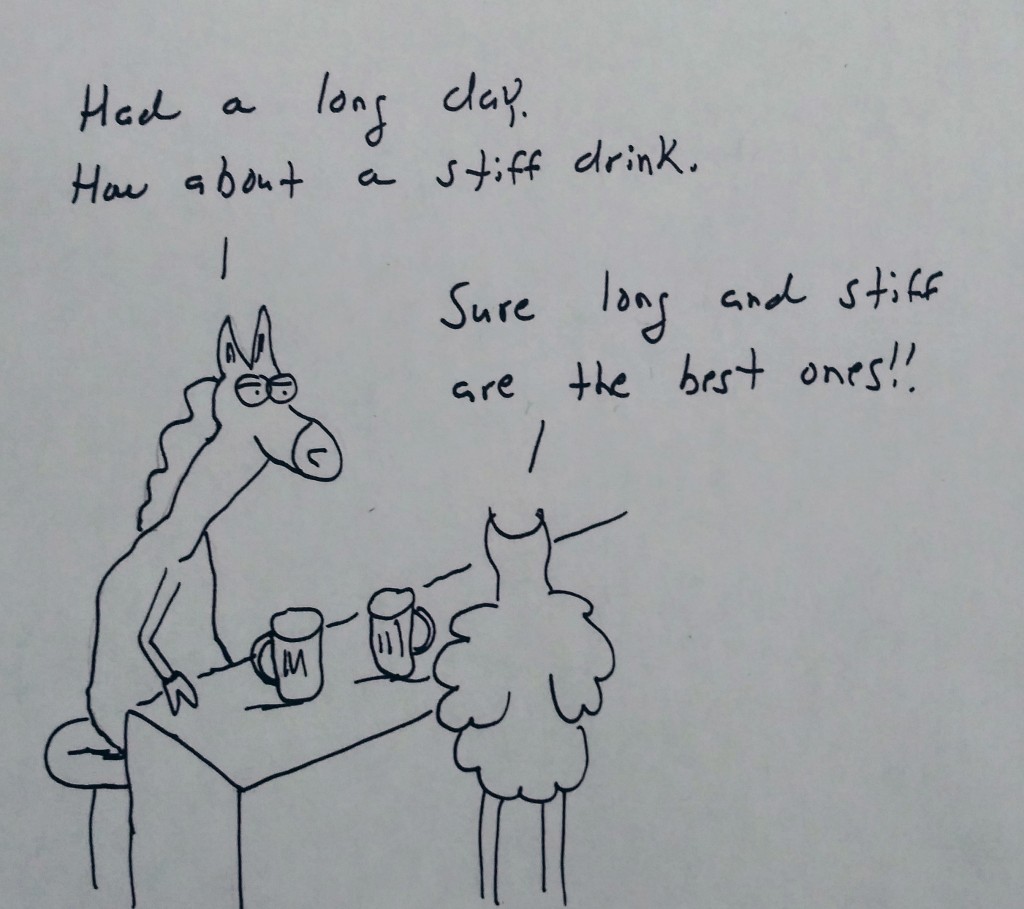 Had a long day.
How about a stiff drink.
Sure long and stiff
are the best ones!!